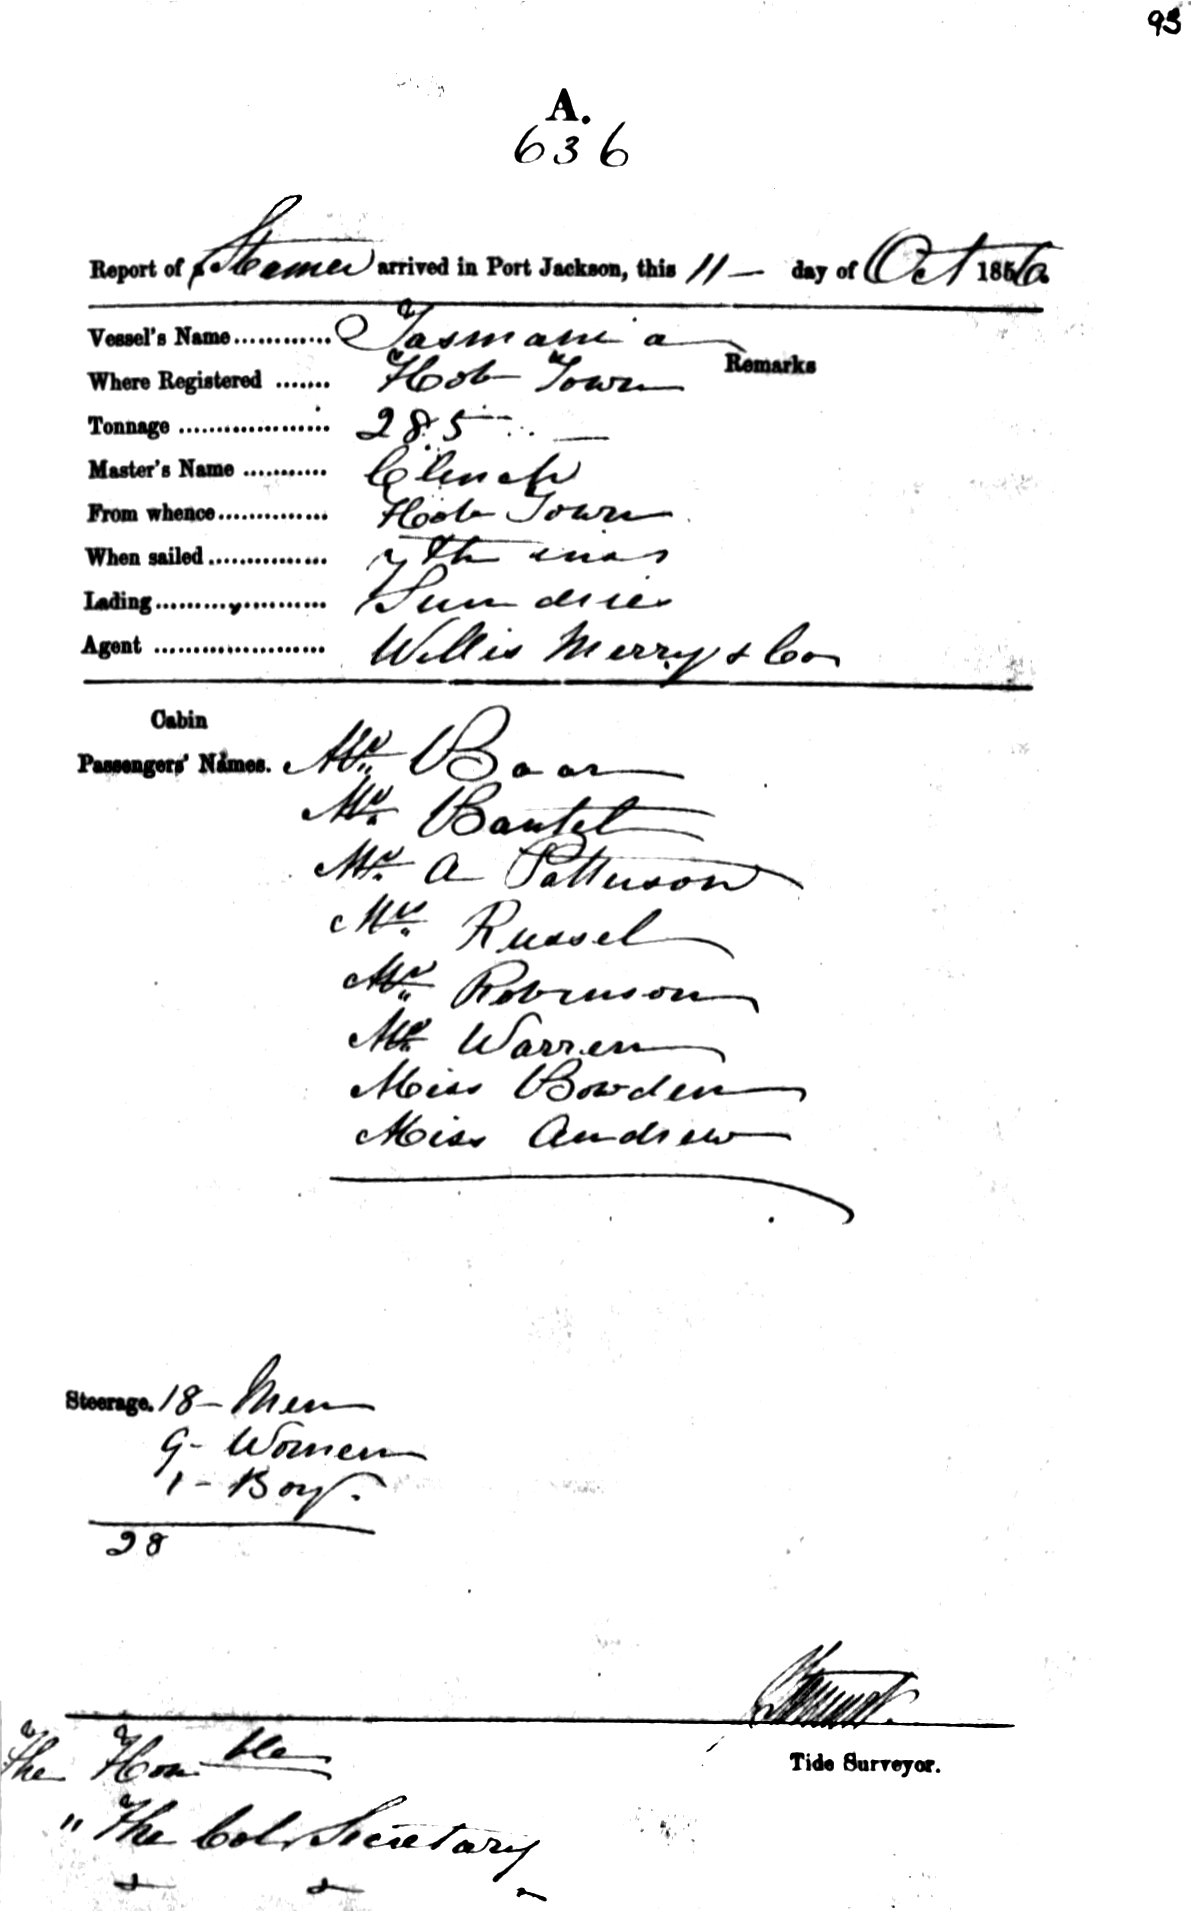 93
A.
636
Report of Steamer arrived in Port Jackson, this 11 — day of Oct 1856.
Vessel's Name ............ Tasmania
Remarks
Where Registered ....... Hob Town
Tonnage ................... 285
Master's Name ........... Clinch
From whence .............. Hob Town
When sailed ............... 7th inst
Lading ..................... Sundries
Agent ...................... Willis Merry & Co
Cabin
Passengers' Names. Mr Baar
Mr
Mr A Patterson
Mrs Russel
Mr Robinson
Mr Warren
Miss Bowden
Miss Andrew
Steerage. 18 - Men
9 - Women
1 - Boy.
28
Tide Surveyor.
The Honble
" The Col. Secretary